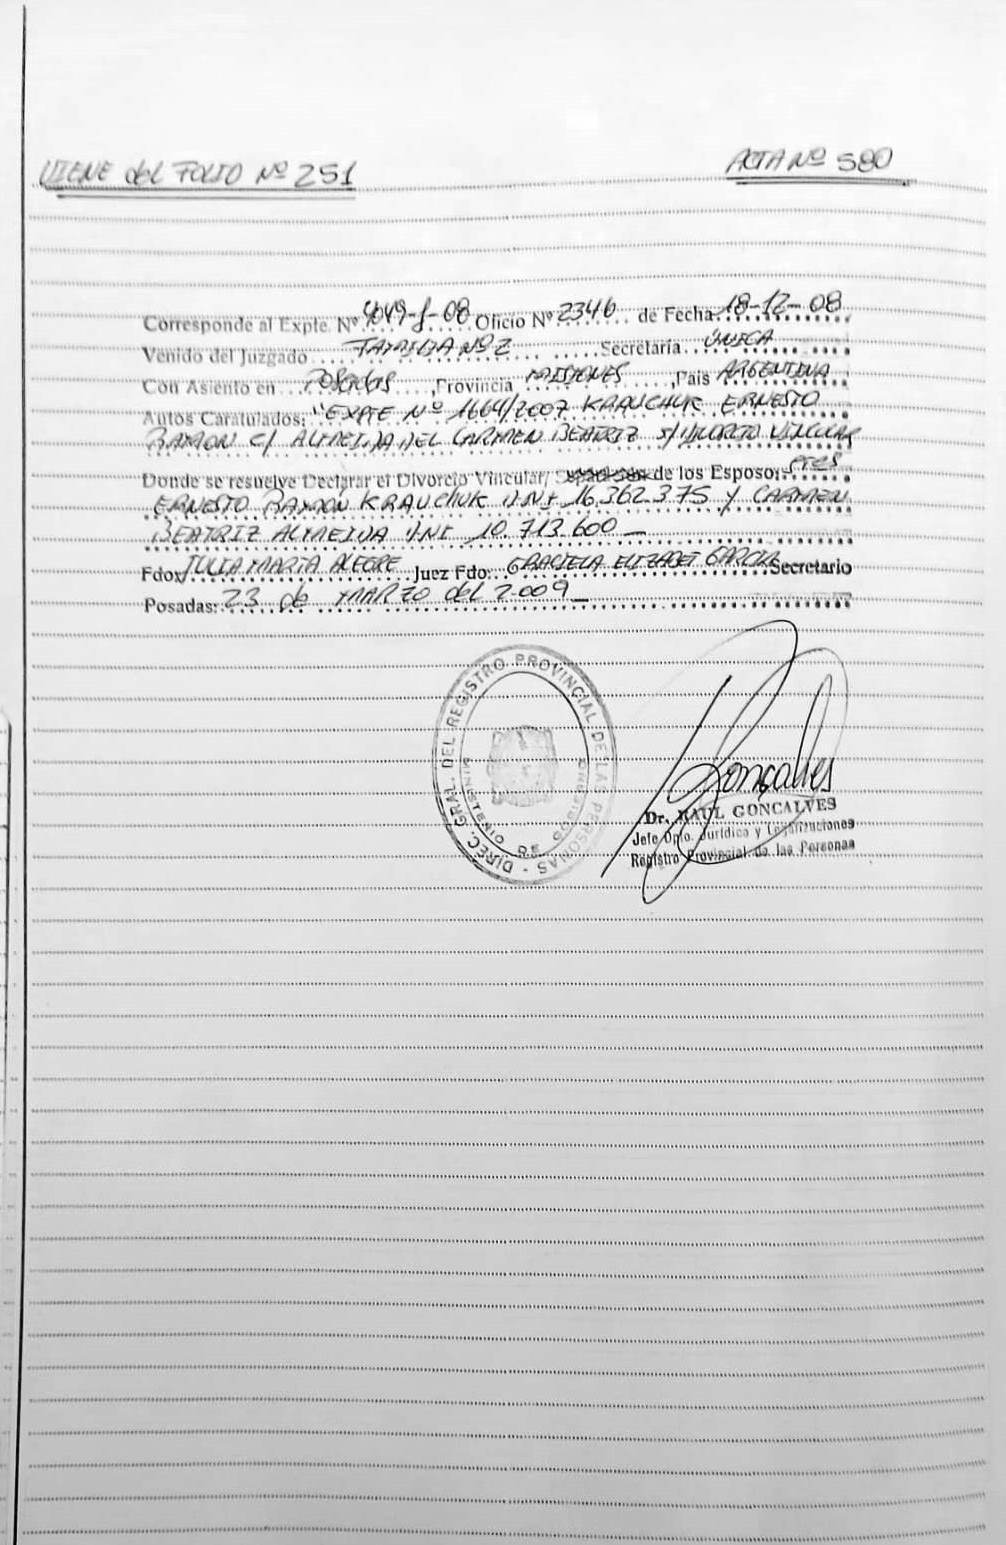 VIENE del FOLIO Nº 251
ACTA Nº 580
Corresponde al Expte. Nº 4049-J-08 Oficio Nº 2346 de Fecha: 18-12-08
Venido del Juzgado FAMILIA Nº 2 Secretaría ÚNICA
Con Asiento en POSADAS, Provincia MISIONES, País ARGENTINA
Autos Caratulados: "EXPTE Nº 1664/2007 KRAUCHUK ERNESTO
RAMON C/ ALMEIDA DEL CARMEN BEATRIZ S/ DIVORCIO VINCULAR
Donde se resuelve Declarar el Divorcio Vincular, de los Esposos: Sres
ERNESTO RAMÓN KRAUCHUK DNI 16.362.375 y CARMEN
BEATRIZ ALMEIDA DNI 10.713.600 —
Fdo: JULIA MARTA ALEGRE Juez Fdo: GRACIELA ELIZABET GARCIA Secretario
Posadas: 23 de MARZO del 2.009 —
DIREC. GRAL. DEL REGISTRO PROVINCIAL DE LAS PERSONAS -
MINISTERIO DE GOBIERNO
Gonçalves
Dr. RAUL GONCALVES
Jefe Dpto. Jurídico y Legalizaciones
Registro Provincial de las Personas